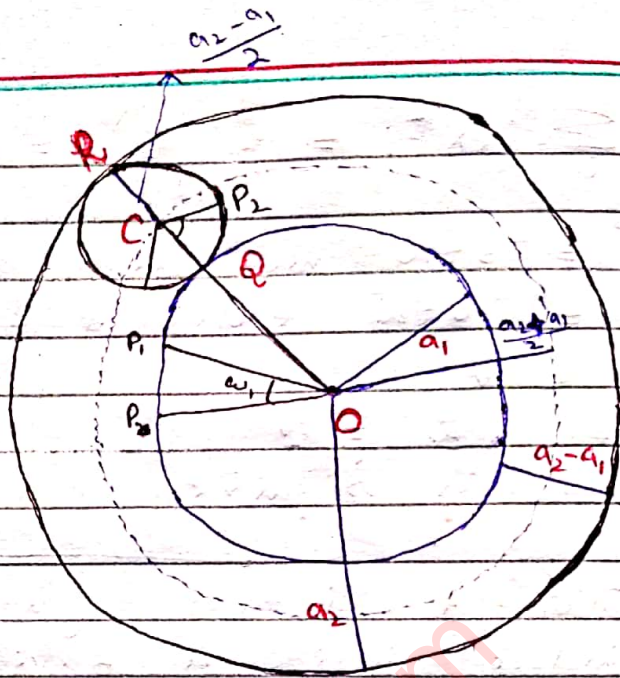 a₂-a₁
2
R
C
P₂
Q
P₁
ω₁
P₂
O
a₁
a₂+a₁
2
a₂-a₁
a₂
m